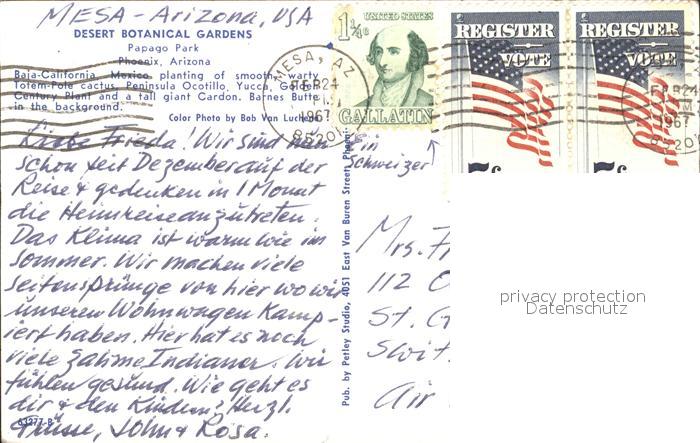 MESA - Arizona, USA
DESERT BOTANICAL GARDENS
Papago Park
Phoenix, Arizona
Baja-California, Mexico planting of smooth, warty
Totem-Pole cactus, Peninsula Ocotillo, Yucca, Golden
Century Plant and a tall giant Cardon. Barnes Butte
in the background.
Color Photo by Bob Van Luchene
Liebe Frieda! Wir sind nun
schon seit Dezember auf der
Reise & gedenken in 1 Monat
die Heimreise anzutreten.
Das Klima ist warm wie im
Sommer. Wir machen viele
Seitensprünge von hier wo wir
unseren Wohnwagen Kamp-
iert haben. Hier hat es noch
viele zahme Indianer. Wir
fühlen gesund. Wie geht es
dir & den Kindern? Herzl.
Grüsse, John & Rosa.
63277-B
Pub. by Petley Studio, 4051 East Van Buren Street, Phoenix
UNITED STATES
1¼¢
GALLATIN
MESA, AZ
FEB 24
1967
8520
Ein
Schweizer
REGISTER
VOTE
5c
REGISTER
VOTE
5c
FEB 24
1967
8520
Mrs. Fr
112
St. G
Swit
Air
privacy protection
Datenschutz